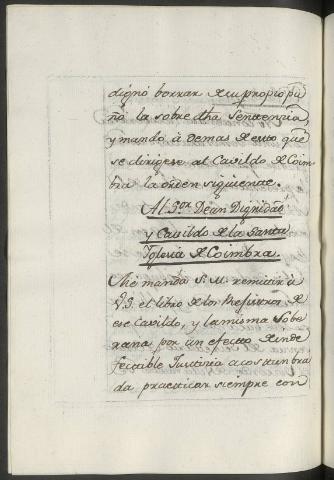 dignó borrar de su propio pu
ño la sobre dha Sentenzia,
y mando à demas de esto que
se dirigese al Cavildo de Coim
bra la orden siguiente.
Al Sor. Dean Dignidad
y Cavildo de la Santa
Iglesia de Coimbra.
Me manda S. M. remitir à
V.S. el libro de los Prefixos de
ese Cavildo, y la misma Sobe
rana por un efecto de inde
fectible Justicia acostumbra
da practicar siempre con